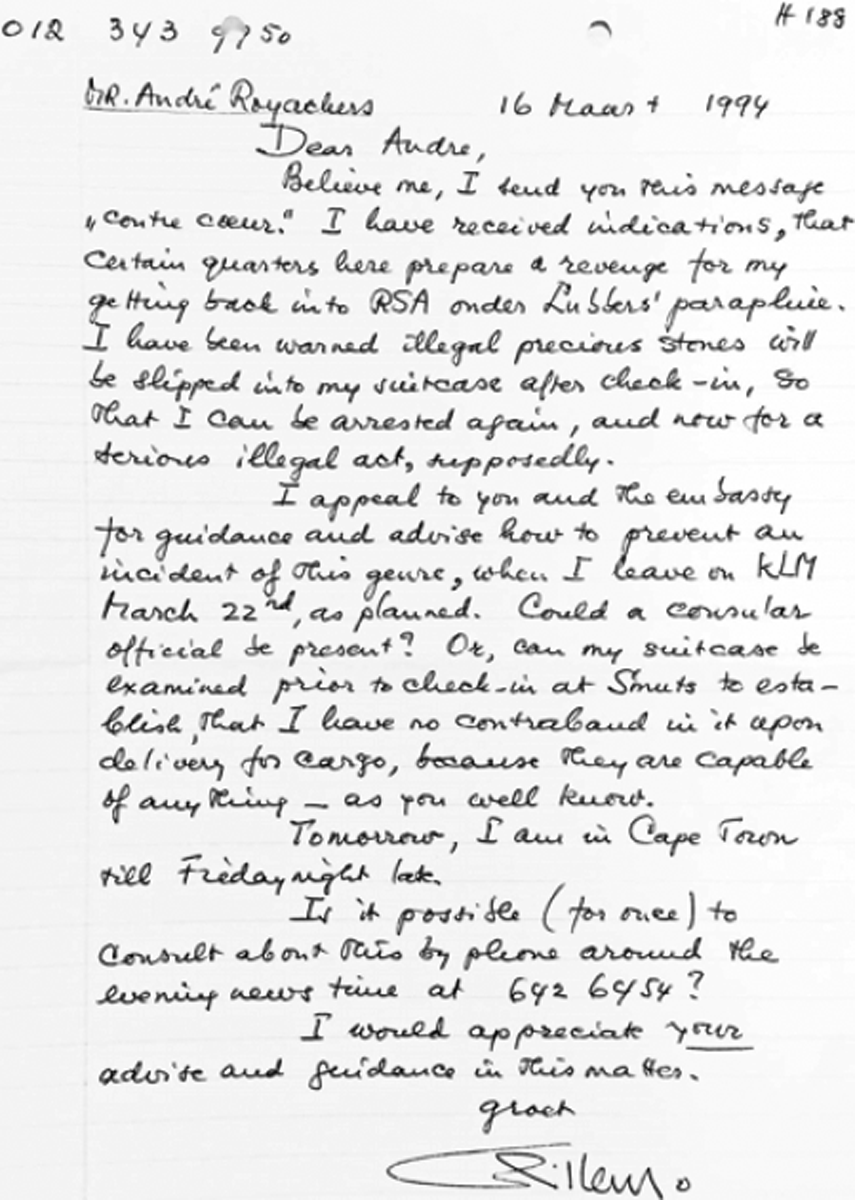 012 343 9950
# 188
DR. André Royachers
16 Maart 1994
Dear Andre,
Believe me, I send you this message
„contre cœur." I have received indications, that
certain quarters here prepare a revenge for my
getting back into RSA onder Lubbers' parapluie.
I have been warned illegal precious stones will
be slipped into my suitcase after check-in, so
that I can be arrested again, and now for a
serious illegal act, supposedly.
I appeal to you and the embassy
for guidance and advise how to prevent an
incident of this genre, when I leave on KLM
March 22nd, as planned. Could a consular
official be present? Or, can my suitcase be
examined prior to check-in at Smuts to esta-
blish, that I have no contraband in it upon
delivery for cargo, because they are capable
of anything – as you well know.
Tomorrow, I am in Cape Town
till Friday night late.
Is it possible (for once) to
consult about this by phone around the
evening news time at 642 6454?
I would appreciate your
advise and guidance in this matter.
groet
Willem